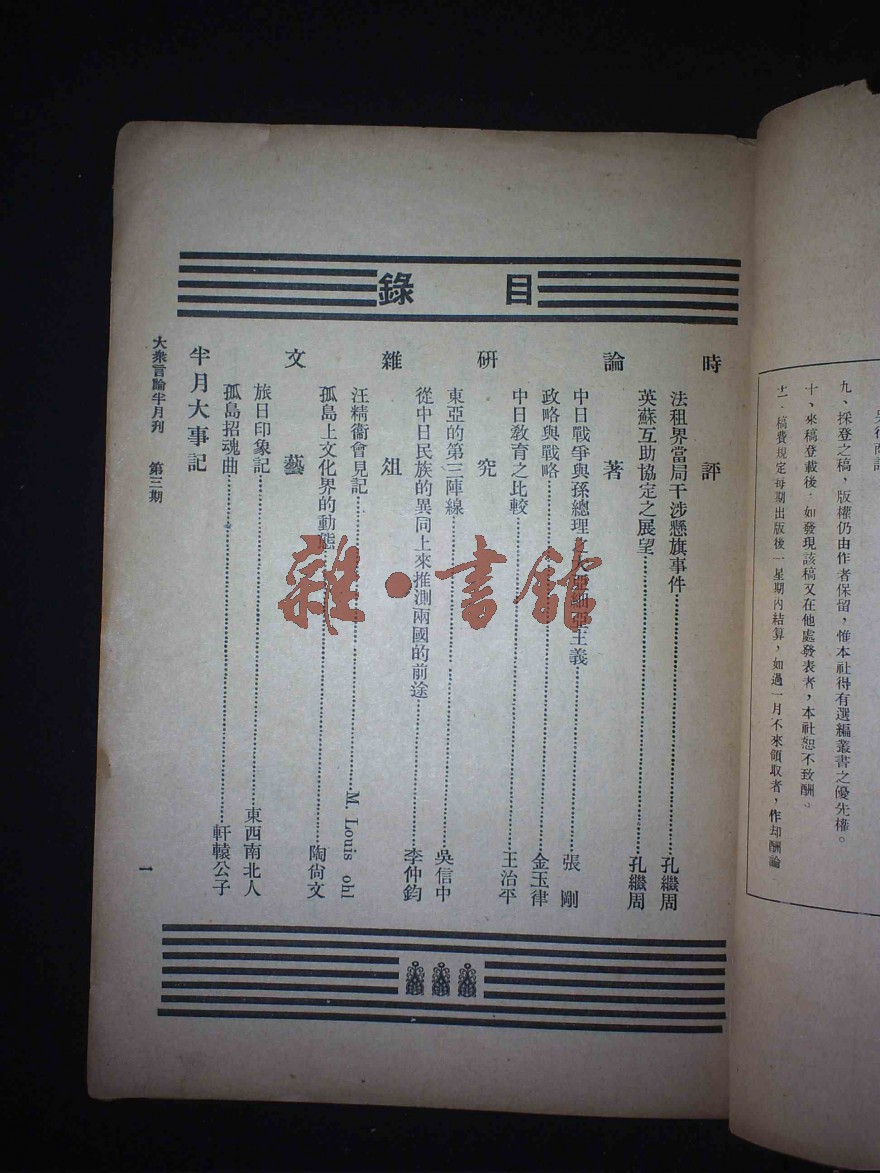 目錄
時評
法租界當局干涉懸旗事件 孔繼周
英蘇互助協定之展望 孔繼周
論著
中日戰爭與孫總理大亞細亞主義 張剛
政略與戰略 金玉律
研究
中日教育之比較 王治平
東亞的第三陣線 吳信中
從中日民族的異同上來推測兩國的前途 李仲鈞
雜俎
汪精衞會見記 M. Louis ohl
孤島上文化界的動態 陶尙文
文藝
旅日印象記 東西南北人
孤島招魂曲 軒轅公子
半月大事記
大衆言論半月刊 第三期
一
雜·書館
九、採登之稿，版權仍由作者保留，惟本社得有選編叢書之優先權。
十、來稿登載後，如發現該稿又在他處發表者，本社恕不致酬。
稿費規定每期出版後一星期內結算，如過一月不來領取者，作却酬論